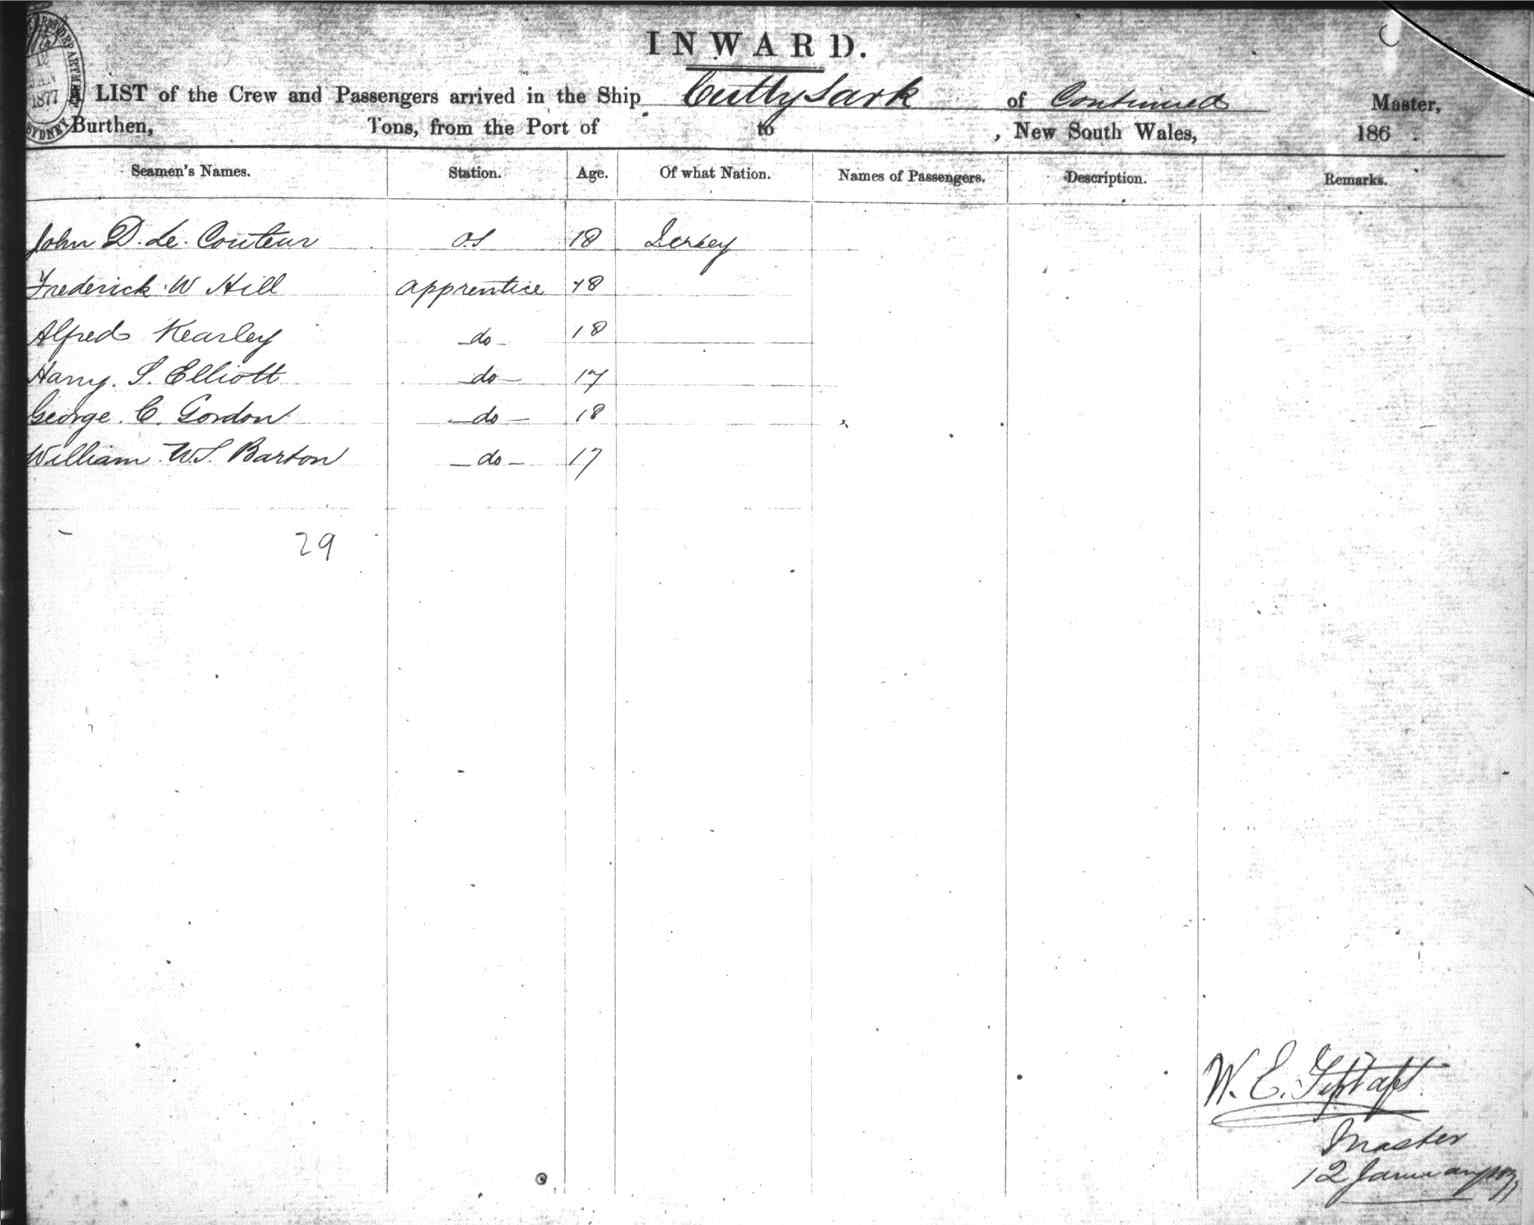 INWARD.
A LIST of the Crew and Passengers arrived in the Ship Cutty Sark of Continued Master,
Burthen, Tons, from the Port of to , New South Wales, 186 .
Seamen's Names. Station. Age. Of what Nation. Names of Passengers. Description. Remarks.
John D. de. Couteur OS 18 Jersey
Frederick W Hill apprentice 18
Alfred Kearley do 18
Harry. S. Elliott do 17
George. C. Gordon do 18
William W.S. Barton do 17
29
W. E. Tiptaft
Master
12 January 1877
1877
SYDNEY